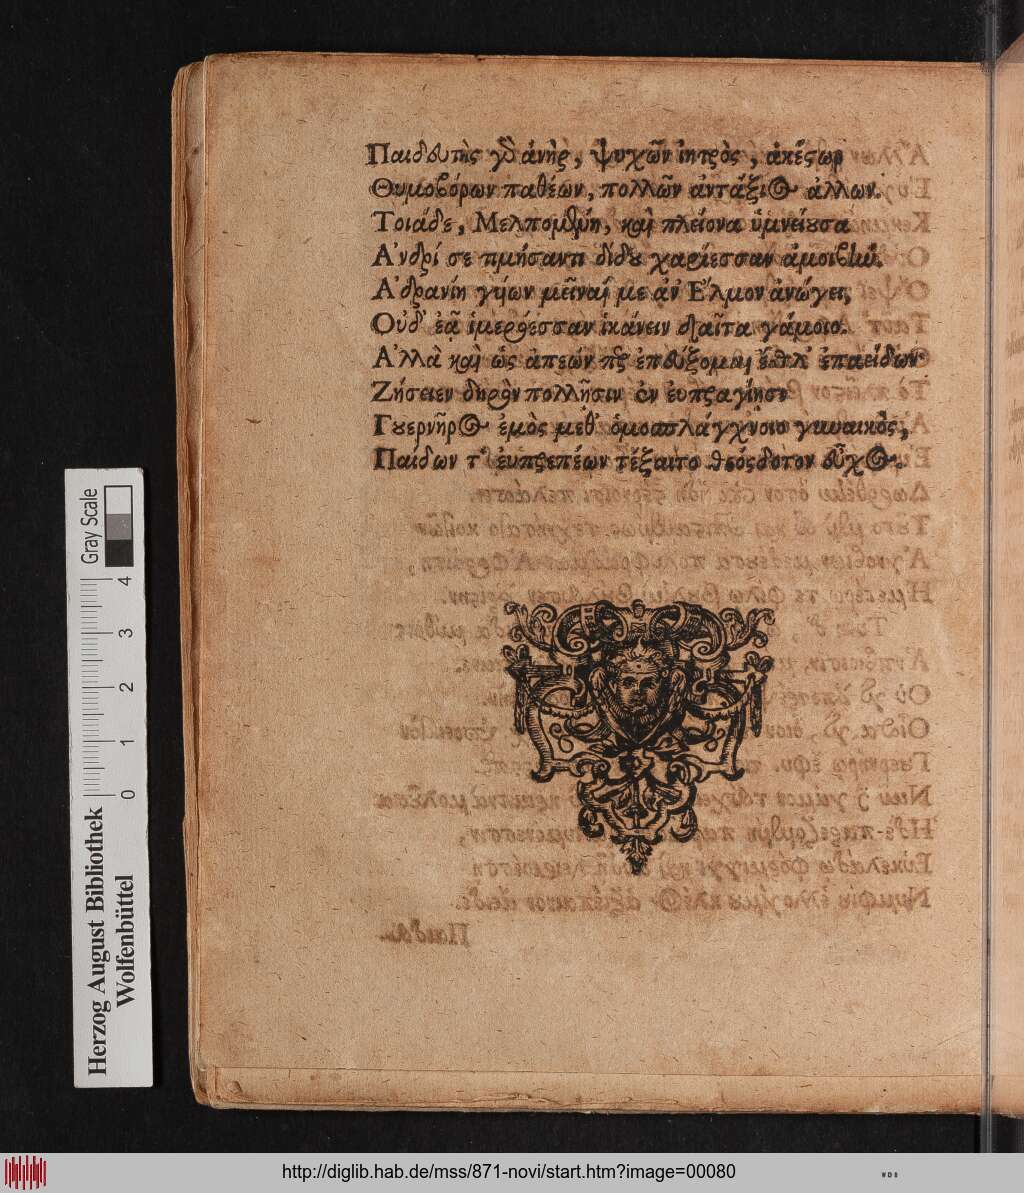 Παιδευτὴς γὸ ἀνὴρ, ψυχῶν ἰητρὸς, ἀκέστωρ
Θυμοβόρων παθέων, πολλῶν ἀντάξιος ἄλλων.
Τοιάδε, Μελπομένη, καὶ πλείονα ὑμνείουσα
Ἀνδρί σε τιμήσαντι δίδου χαρίεσσαν ἀμοιβήν.
Ἀδρανίη γήων μεῖναί με ἀν' Ἕλμον ἀνώγει,
Οὐδ' ἐᾷ ἱμερόεσσαν ἱκάνειν δαῖτα γάμοιο.
Ἀλλὰ καὶ ὡς ἀπεών τις ἐπεύξομαι ἐσθλ' ἐπαείδων
Ζήσειεν δηρὸν πολλῇσιν ἐν εὐπραγίῃσιν
Γουερνῆρος ἐμὸς μεθ' ὁμοσπλάγχνοιο γυναικὸς,
Παίδων τ' εὐπρεπέων τέξαιτο θεόσδοτον εὖχος.
Gray Scale
0 1 2 3 4
Herzog August Bibliothek
Wolfenbüttel
http://diglib.hab.de/mss/871-novi/start.htm?image=00080